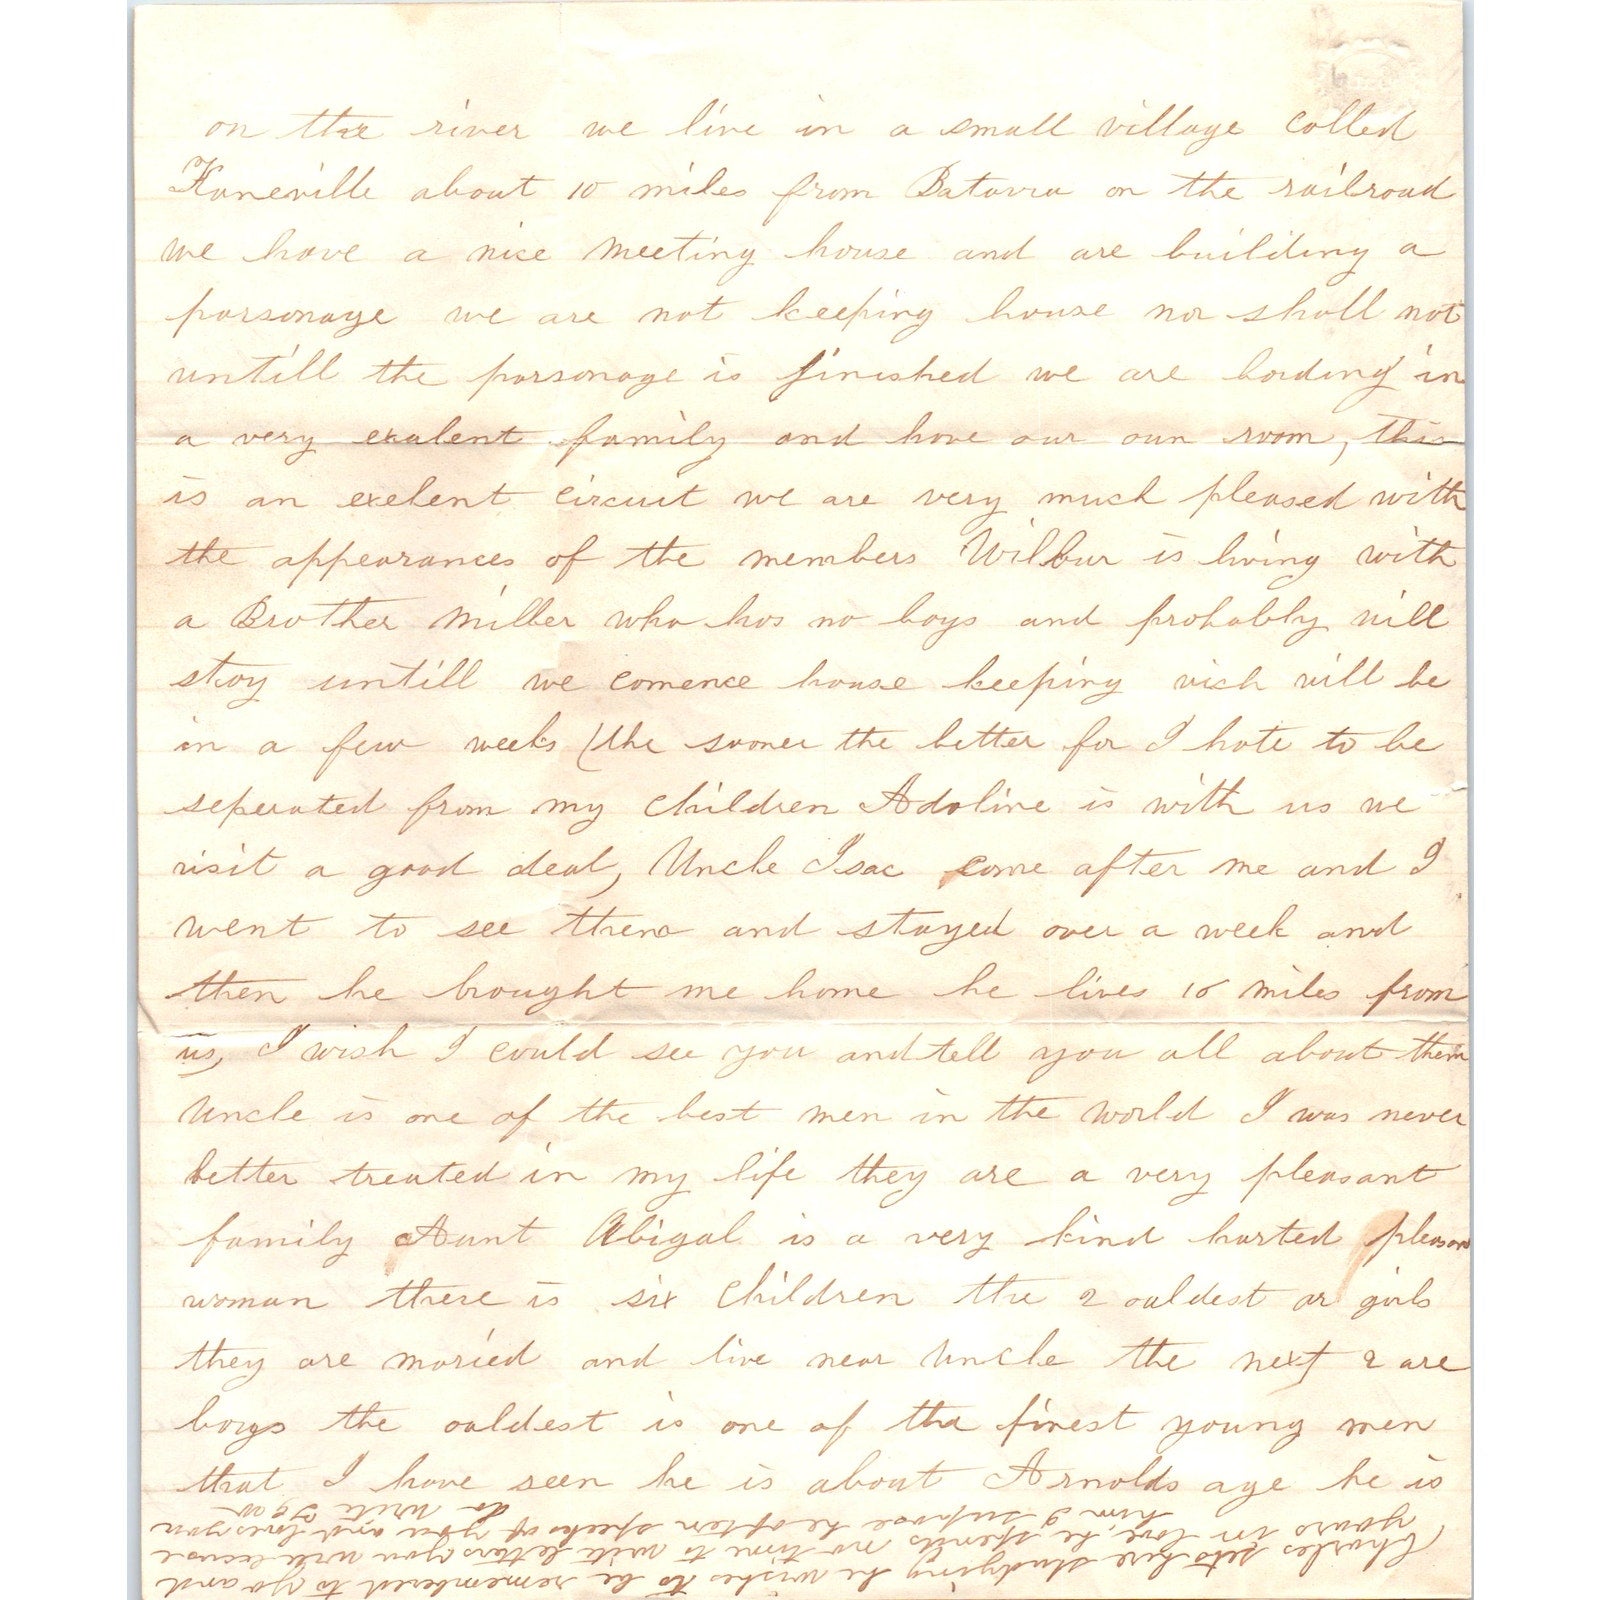 on the river we live in a small village called
Kaneville about 10 miles from Batavia on the railroad
we have a nice meeting house and are building a
parsonage we are not keeping house nor shall not
untill the parsonage is finished we are bording in
a very exalent family and have our own room, this
is an exelent circuit we are very much pleased with
the appearances of the members Wilbur is living with
a Brother Miller who has no boys and probably will
stay untill we comence house keeping wich will be
in a few weeks (the sooner the better for I hate to be
seperated from my children Adoline is with us we
visit a good deal, Uncle Isac come after me and I
went to see them and stayed over a week and
then he brought me home he lives 16 miles from
us, I wish I could see you and tell you all about them
Uncle is one of the best men in the world I was never
better treated in my life they are a very pleasant
family Aunt Abigal is a very kind harted pleasant
woman there is six children the 2 ouldest ar girls
they are maried and live near Uncle the next 2 are
boys the ouldest is one of the finest young men
that I have seen he is about Arnolds age he is
Charles sets here studying he wishes to be remembered to you and
yours in love, he spends no time to writ letters you will excuse
him I supose he often speaks of you and loves you
do write soon